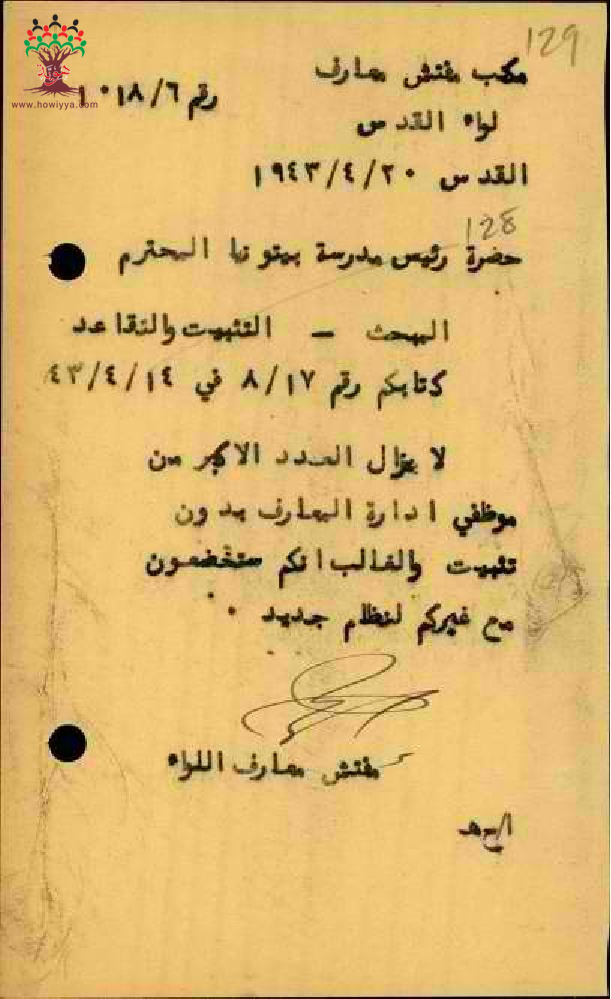 129
مكتب مفتش معارف
رقم ١٠١٨/٦
www.howiyya.com
لواء القدس
القدس ١٩٤٣/٤/٢٠
128
حضرة رئيس مدرسة بيتونيا المحترم
البحث – التثبيت والتقاعد
كتابكم رقم ٨/١٧ في ٤٣/٤/١٤
لا يزال العدد الاكبر من
موظفي ادارة المعارف بدون
تثبيت والغالب انكم ستخضعون
مع غيركم لنظام جديد .
مفتش معارف اللواء